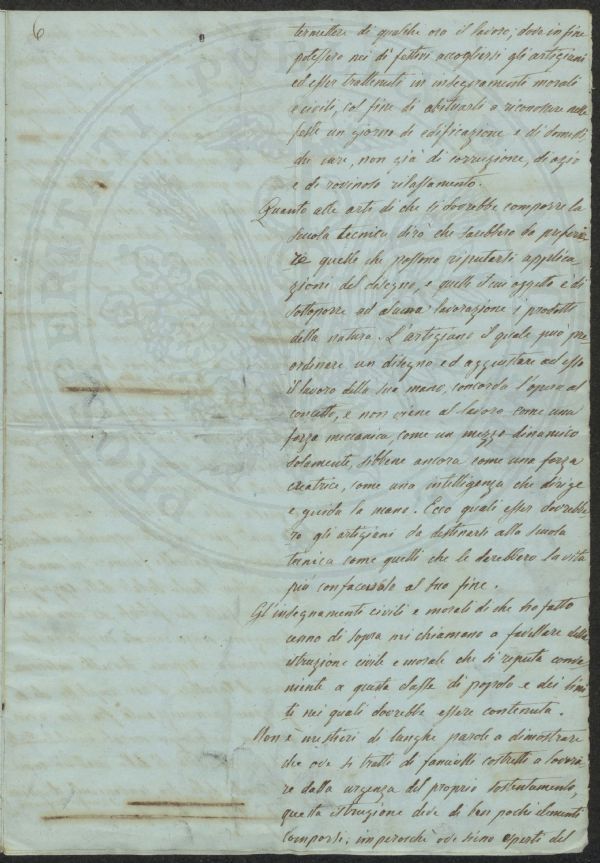 6
termettere di qualche ora il lavoro; dove in fine
potessero nei dì festivi accogliersi gli artigiani
ed esser trattenuti in insegnamento morali
e civili, col fine di abituarli a riconoscere nelle
feste un giorno di edificazione e di
care, non già di corruzione, di ozio
e di rovinoso rilassamento.
Quanto alle arti di che si dovrebbe comporre la
scuola tecnica dirò che sarebbero da preferir
re quelle che possono riputarsi applica
zioni del disegno, e quelle il cui oggetto è di
sottoporre ad alcuna lavorazione i prodotti
della natura. L'artigiano il quale può pre
ordinare un disegno ed aggiustare ad esso
il lavoro della sua mano, concorda l'opera al
concetto, e non viene al lavoro come una
forza meccanica, come un mezzo dinamico
solamente, sibbene ancora come una forza
creatrice, come una intelligenza che dirige
e guida la mano. Ecco quali esser dovrebbe
ro gli artigiani da destinarsi alla scuola
tecnica come quelli che le darebbero la vita
più confacevole al suo fine.
Gl'insegnamenti civili e morali di che ho fatto
cenno di sopra mi chiamano a favellare della
istruzione civile e morale che si reputa conve
niente a questa classe di popolo e dei limi
ti nei quali dovrebbe essere contenuta.
Non è mestieri di lunghe parole a dimostrare
che ove si tratti di fanciulli costretti a lavora
re dalla urgenza del proprio sostentamento,
questa istruzione deve di ben pochi elementi
comporsi; imperocché ove sieno esperti del
PROSPERITATI PUBL